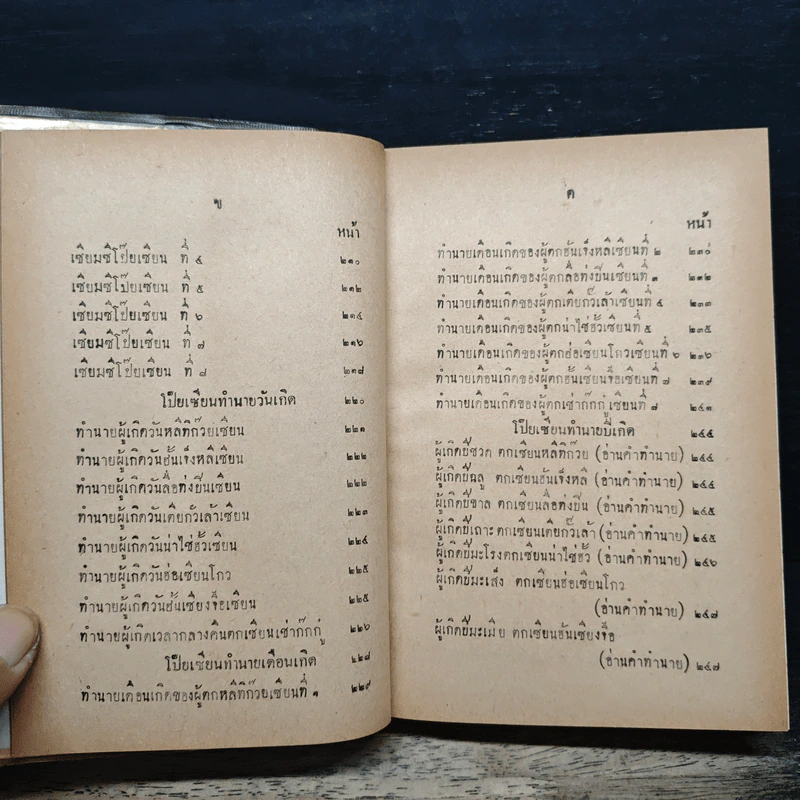 ข
หน้า
เซียมซีโป๊ยเซียน ที่ ๔ ๒๑๐
เซียมซีโป๊ยเซียน ที่ ๕ ๒๑๒
เซียมซีโป๊ยเซียน ที่ ๖ ๒๑๔
เซียมซีโป๊ยเซียน ที่ ๗ ๒๑๖
เซียมซีโป๊ยเซียน ที่ ๘ ๒๑๘
โป๊ยเซียนทำนายวันเกิด ๒๒๐
ทำนายผู้เกิดวันหลีทิก๊วยเซียน ๒๒๑
ทำนายผู้เกิดวันฮั่นเจ็งหลีเซียน ๒๒๒
ทำนายผู้เกิดวันลื่อท่งปินเซียน ๒๒๒
ทำนายผู้เกิดวันเตียก๊วเล้าเซียน ๒๒๓
ทำนายผู้เกิดวันน่าไซ่ฮั้วเซียน ๒๒๔
ทำนายผู้เกิดวันฮ่อเซียนโกว ๒๒๕
ทำนายผู้เกิดวันฮั้นเซียงจือเซียน ๒๒๕
ทำนายผู้เกิดเวลากลางคืนตกเซียนเช่าก๊กกู๋ ๒๒๖
โป๊ยเซียนทำนายเดือนเกิด ๒๒๘
ทำนายเดือนเกิดของผู้ตกหลีทิก๊วยเซียนที่ ๑ ๒๒๙
ค
หน้า
ทำนายเดือนเกิดของผู้ตกฮั่นเจ็งหลีเซียนที่ ๒ ๒๓๐
ทำนายเดือนเกิดของผู้ตกลื่อท่งปินเซียนที่ ๓ ๒๓๒
ทำนายเดือนเกิดของผู้ตกเตียก๊วเล้าเซียนที่ ๔ ๒๓๓
ทำนายเดือนเกิดของผู้ตกน่าไซ่ฮั้วเซียนที่ ๕ ๒๓๕
ทำนายเดือนเกิดของผู้ตกฮ่อเซียนโกวเซียนที่ ๖ ๒๓๖
ทำนายเดือนเกิดของผู้ตกฮั้นเซียงจือเซียนที่ ๗ ๒๓๙
ทำนายเดือนเกิดของผู้ตกเช่าก๊กกู๋เซียนที่ ๘ ๒๔๑
โป๊ยเซียนทำนายปีเกิด ๒๔๔
ผู้เกิดปีชวด ตกเซียนหลีทิก๊วย (อ่านคำทำนาย) ๒๔๔
ผู้เกิดปีฉลู ตกเซียนฮั่นเจ็งหลี (อ่านคำทำนาย) ๒๔๔
ผู้เกิดปีขาล ตกเซียนลื่อท่งปิน (อ่านคำทำนาย) ๒๔๕
ผู้เกิดปีเถาะ ตกเซียนเตียก๊วเล้า (อ่านคำทำนาย) ๒๔๕
ผู้เกิดปีมะโรงตกเซียนน่าไซ่ฮั้ว (อ่านคำทำนาย) ๒๔๖
ผู้เกิดปีมะเส็ง ตกเซียนฮ่อเซียนโกว
(อ่านคำทำนาย) ๒๔๗
ผู้เกิดปีมะเมีย ตกเซียนฮั้นเซียงจือ
(อ่านคำทำนาย) ๒๔๗